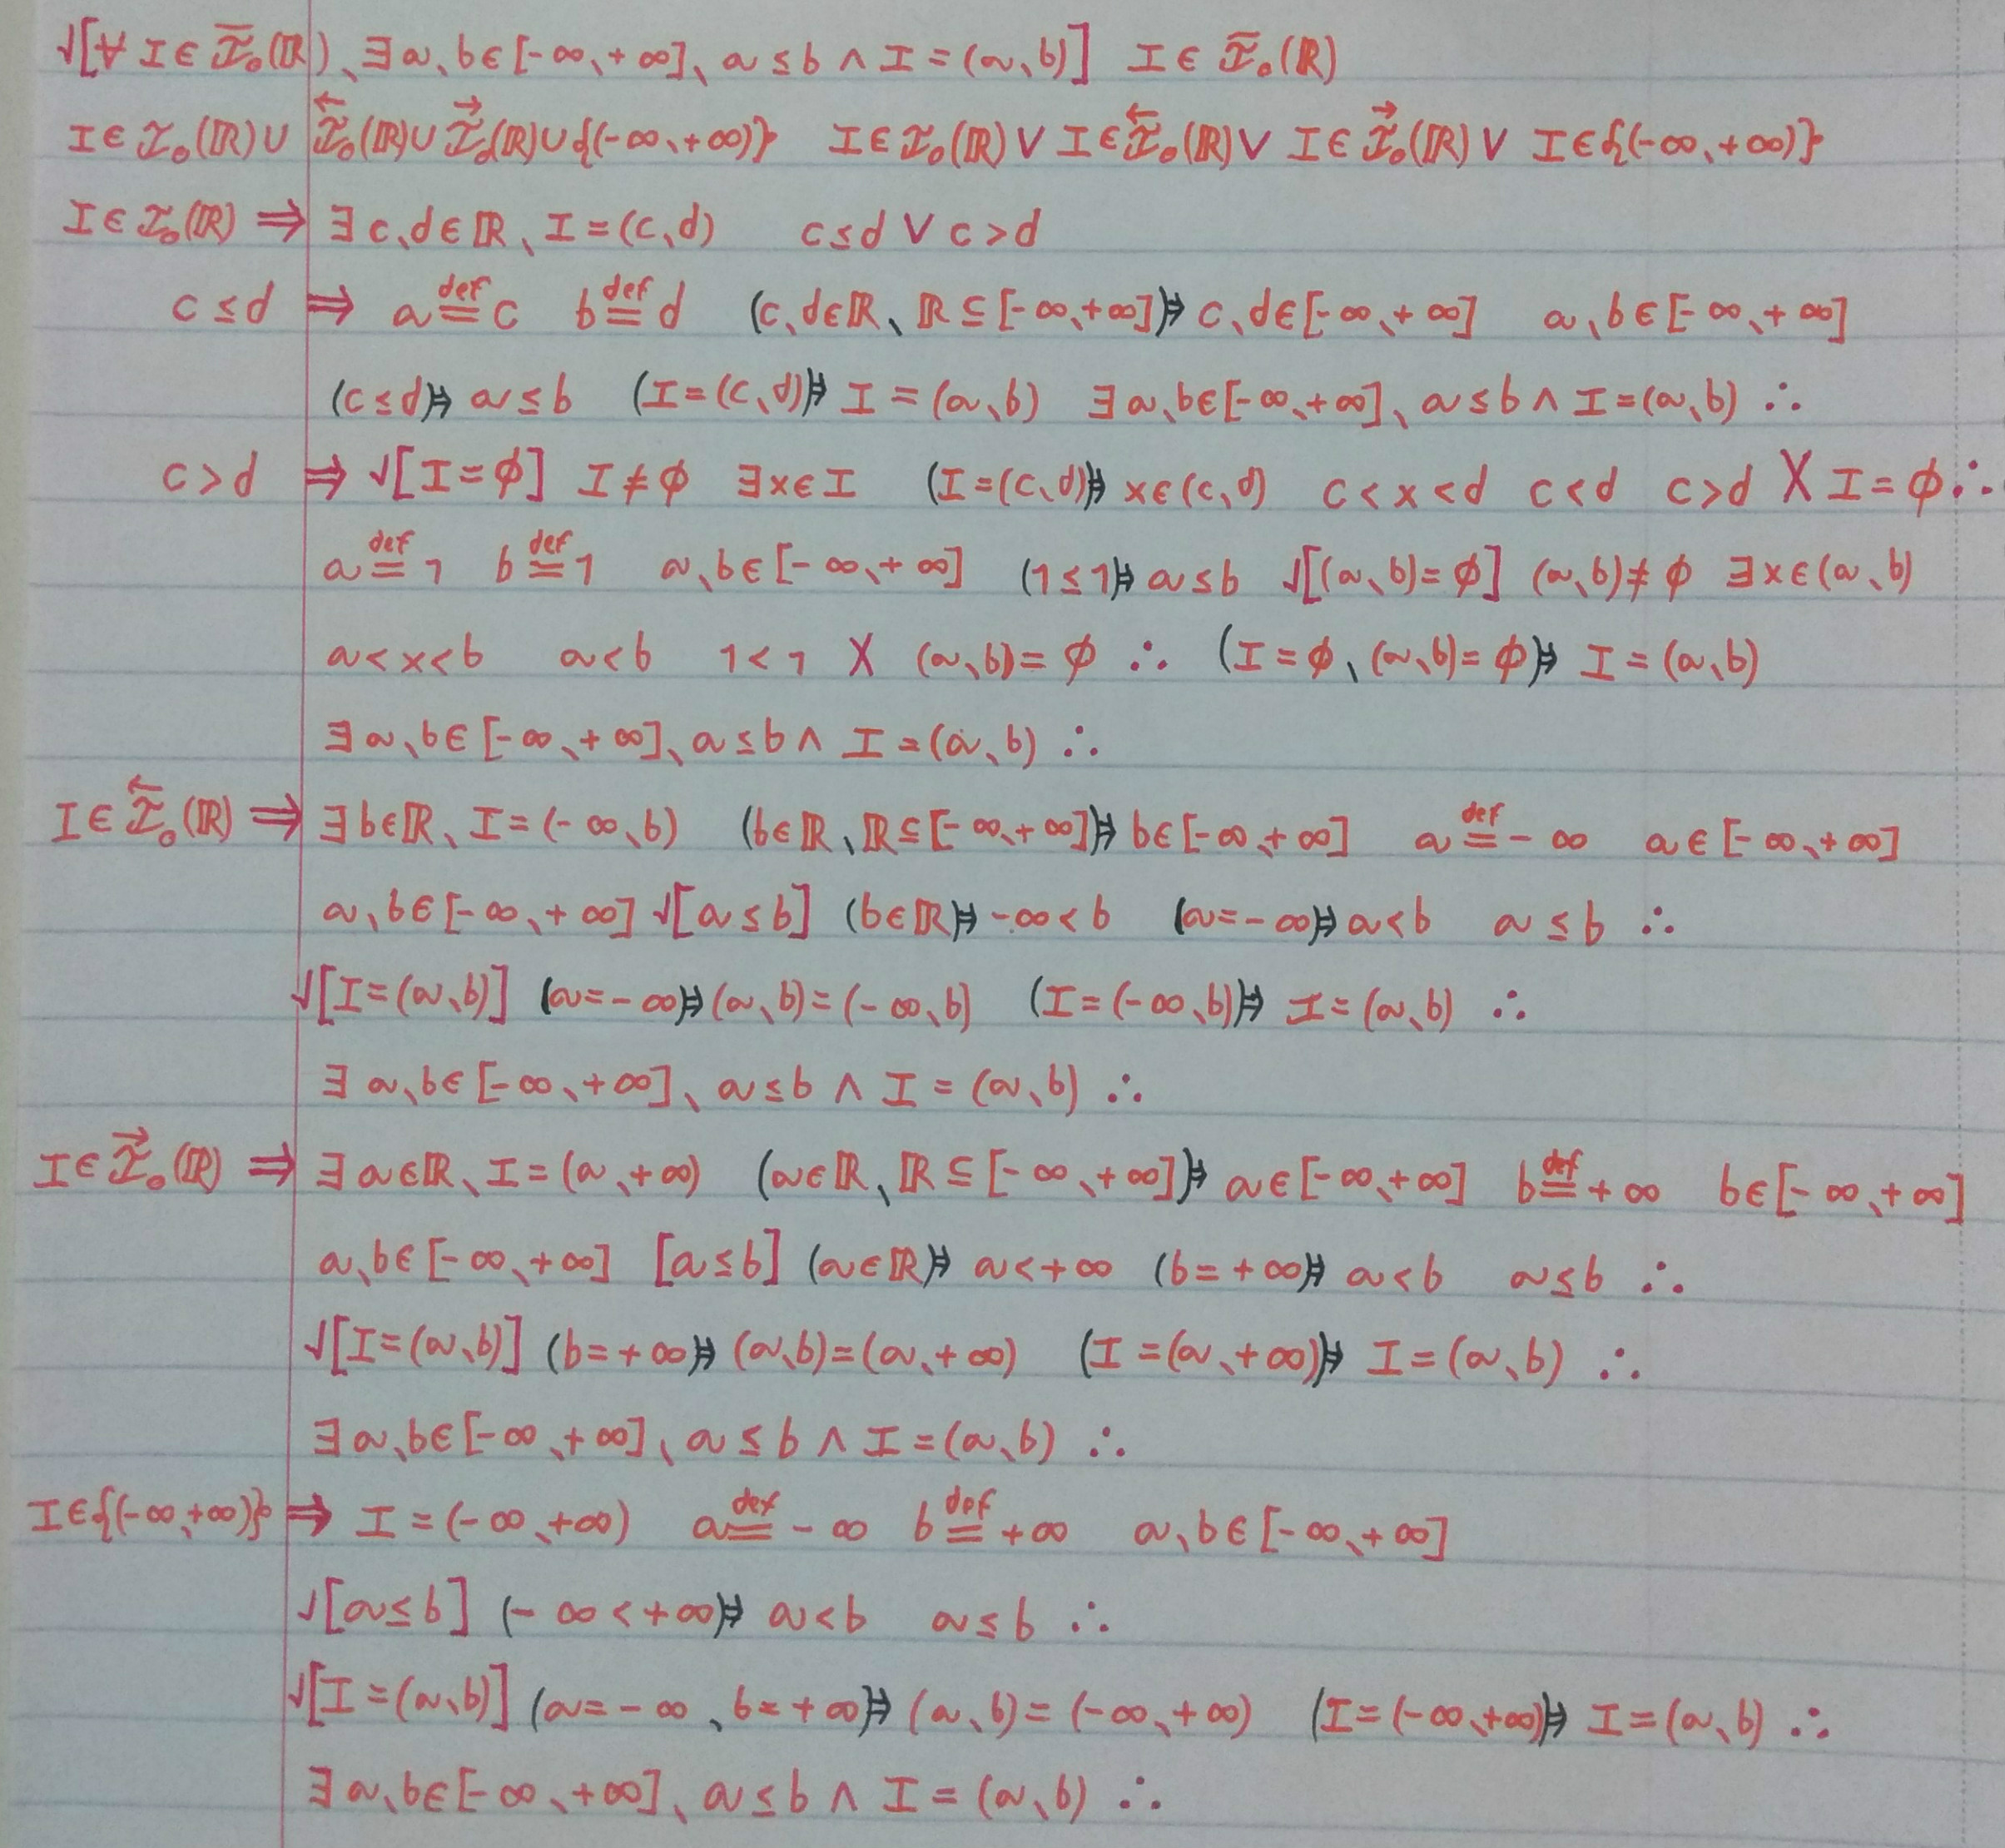 √[∀ I ∈ 𝓘̄ₒ(ℝ)、∃ a、b ∈ [-∞、+∞]、a ≤ b ∧ I = (a、b)] I ∈ 𝓘̄ₒ(ℝ)
I ∈ 𝓘ₒ(ℝ) ∪ 𝓘⃖ₒ(ℝ) ∪ 𝓘⃗ₒ(ℝ) ∪ {(-∞、+∞)} I ∈ 𝓘ₒ(ℝ) ∨ I ∈ 𝓘⃖ₒ(ℝ) ∨ I ∈ 𝓘⃗ₒ(ℝ) ∨ I ∈ {(-∞、+∞)}
I ∈ 𝓘ₒ(ℝ) ⇒ ∃ c、d ∈ ℝ、I = (c、d) c ≤ d ∨ c > d
c ≤ d ⇒ a def= c b def= d (c、d ∈ ℝ、ℝ ⊆ [-∞、+∞])⇒ c、d ∈ [-∞、+∞] a、b ∈ [-∞、+∞]
(c ≤ d)⇒ a ≤ b (I = (c、d))⇒ I = (a、b) ∃ a、b ∈ [-∞、+∞]、a ≤ b ∧ I = (a、b) ∴
c > d ⇒ √[I = ϕ] I ≠ ϕ ∃ x ∈ I (I = (c、d))⇒ x ∈ (c、d) c < x < d c < d c > d X I = ϕ ∴
a def= 1 b def= 1 a、b ∈ [-∞、+∞] (1 ≤ 1)⇒ a ≤ b √[(a、b) = ϕ] (a、b) ≠ ϕ ∃ x ∈ (a、b)
a < x < b a < b 1 < 1 X (a、b) = ϕ ∴ (I = ϕ、(a、b) = ϕ)⇒ I = (a、b)
∃ a、b ∈ [-∞、+∞]、a ≤ b ∧ I = (a、b) ∴
I ∈ 𝓘⃖ₒ(ℝ) ⇒ ∃ b ∈ ℝ、I = (-∞、b) (b ∈ ℝ、ℝ ⊆ [-∞、+∞])⇒ b ∈ [-∞、+∞] a def= -∞ a ∈ [-∞、+∞]
a、b ∈ [-∞、+∞] √[a ≤ b] (b ∈ ℝ)⇒ -∞ < b (a = -∞)⇒ a < b a ≤ b ∴
√[I = (a、b)] (a = -∞)⇒ (a、b) = (-∞、b) (I = (-∞、b))⇒ I = (a、b) ∴
∃ a、b ∈ [-∞、+∞]、a ≤ b ∧ I = (a、b) ∴
I ∈ 𝓘⃗ₒ(ℝ) ⇒ ∃ a ∈ ℝ、I = (a、+∞) (a ∈ ℝ、ℝ ⊆ [-∞、+∞])⇒ a ∈ [-∞、+∞] b def= +∞ b ∈ [-∞、+∞]
a、b ∈ [-∞、+∞] [a ≤ b] (a ∈ ℝ)⇒ a < +∞ (b = +∞)⇒ a < b a ≤ b ∴
√[I = (a、b)] (b = +∞)⇒ (a、b) = (a、+∞) (I = (a、+∞))⇒ I = (a、b) ∴
∃ a、b ∈ [-∞、+∞]、a ≤ b ∧ I = (a、b) ∴
I ∈ {(-∞、+∞)} ⇒ I = (-∞、+∞) a def= -∞ b def= +∞ a、b ∈ [-∞、+∞]
√[a ≤ b] (-∞ < +∞)⇒ a < b a ≤ b ∴
√[I = (a、b)] (a = -∞、b = +∞)⇒ (a、b) = (-∞、+∞) (I = (-∞、+∞))⇒ I = (a、b) ∴
∃ a、b ∈ [-∞、+∞]、a ≤ b ∧ I = (a、b) ∴